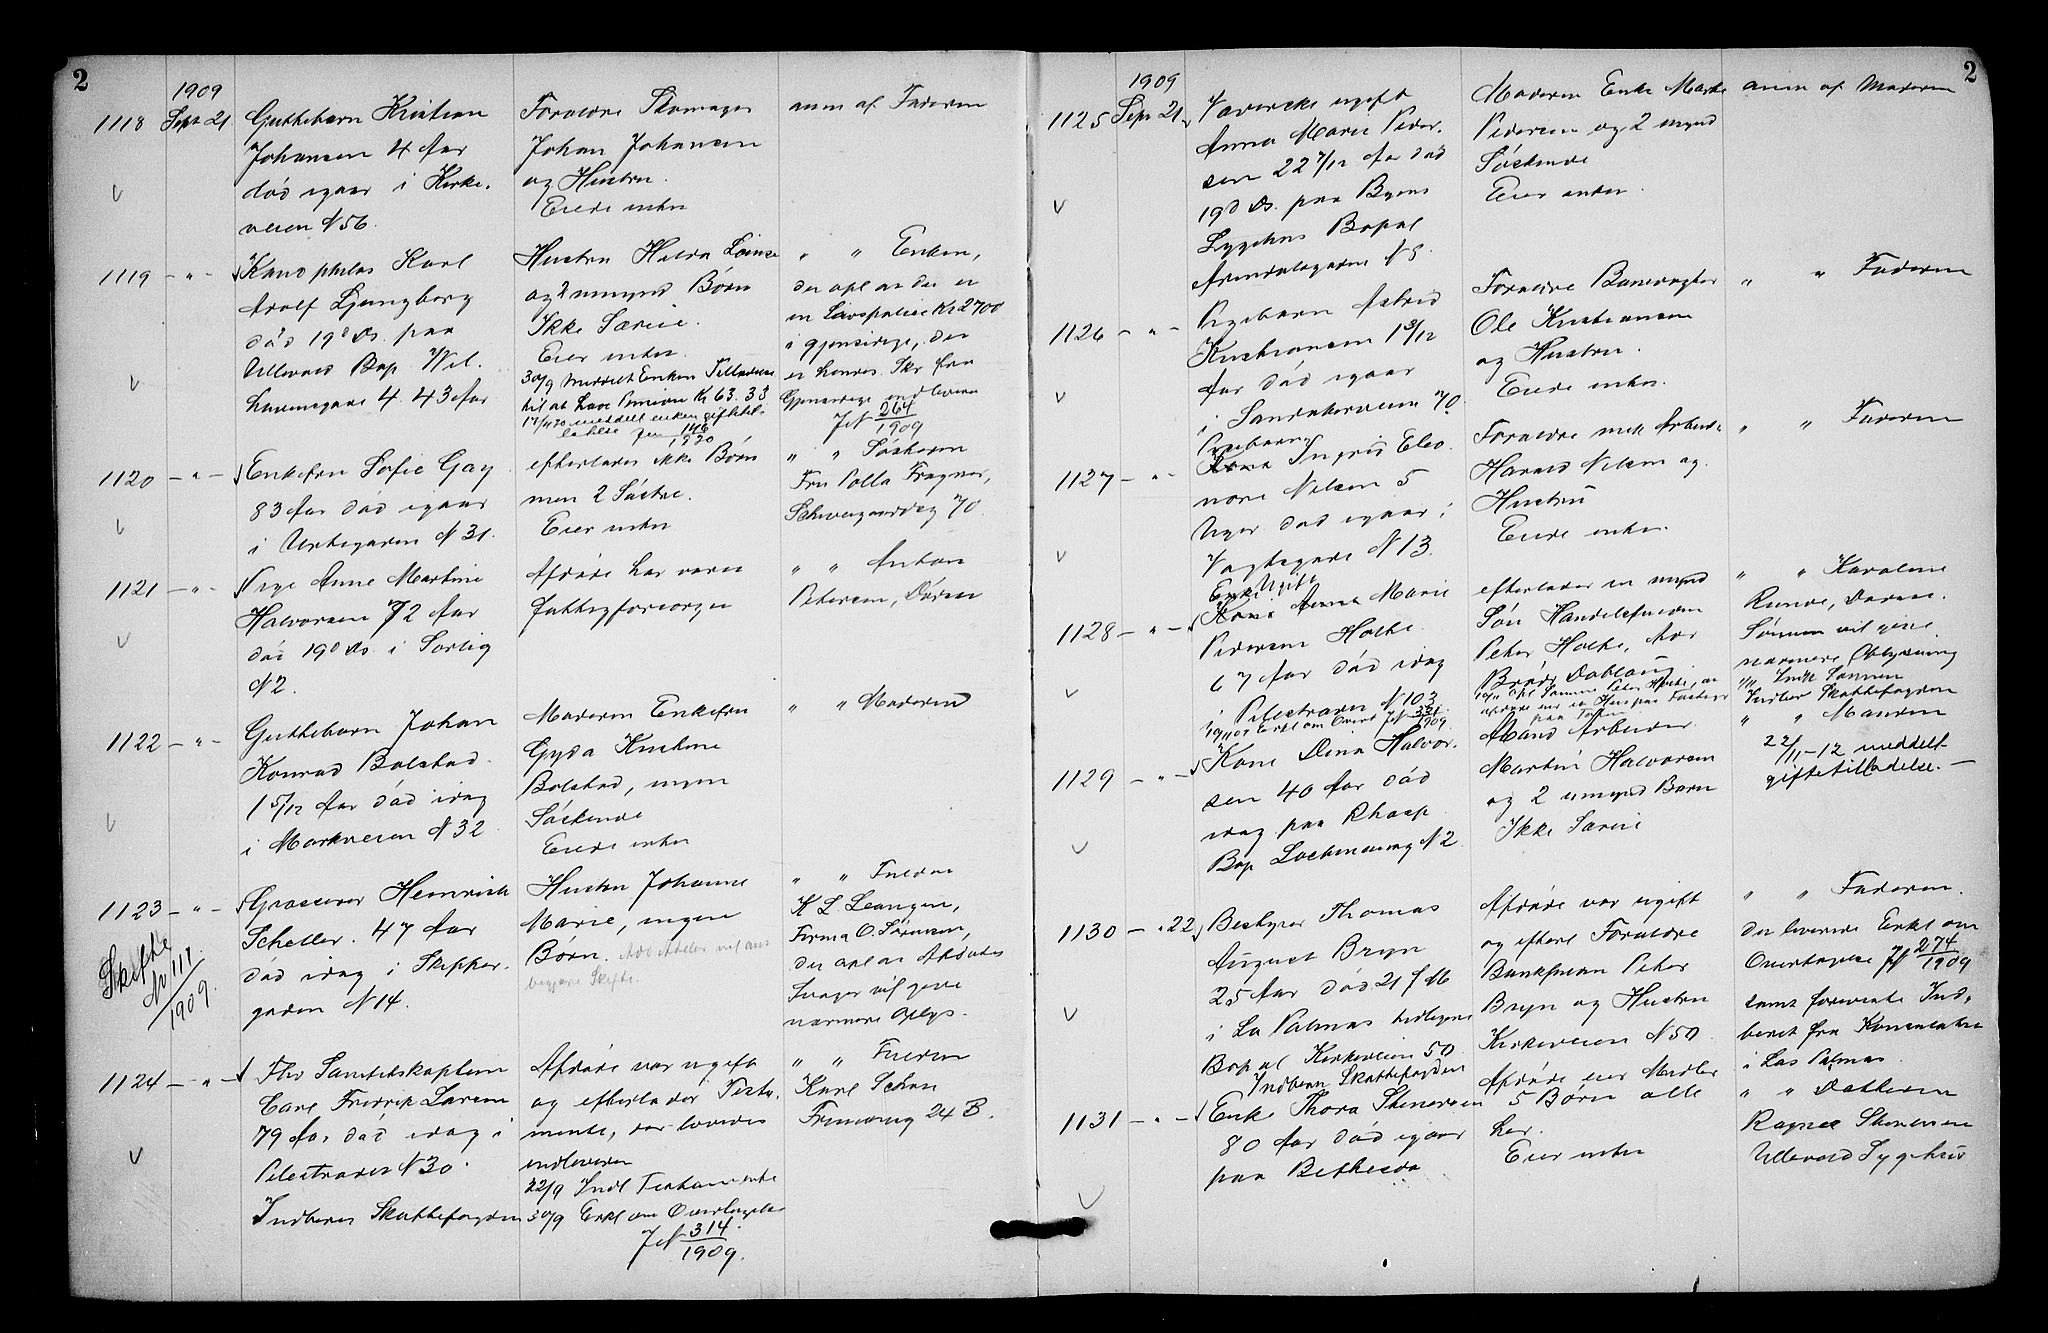 2
1909
1118 Sept 21 Guttebarn Kristian
Johansen 4 Aar
død igaar i Kirke-
veien N 56.
Forældre Skomager
Johan Johansen
og Hustru.
Eiede intet
anm af Faderen
1119 - " - Karl
Adolf Ljungberg
død 19d ds. paa
Ullevaal Bop Wil-
helmsgade 4. 43 Aar
Hustru Hilda Lovise
og 2 umynd Børn
Ikke Særeie.
Eier intet.
30/9 meddelt Enken Tilladelse
til at hæve Pension Kr 63.33
17/11 20 meddelt enken giftetil-
ladelse Jn 146
1920
" " Enken,
der opl at der er
en Livspolice Kr 2700
i gjensidige, der
er hendes. Skr fra
Gjensidige indleveres
JN 264
1909
1120 - " - Enkefru Sofie Gay
83 Aar død igaar
i Urtegaden N 31.
efterlader ikke Børn
men 2 Søstre.
Eier intet
" " Søsteren
Fru Polla Fragner,
Schweigaardsg 70.
1121 - " - Pige Anne Martine
Halvorsen 72 Aar
død 19d ds i Sorlig
N 2.
Afdøde har været
fattigforsørget
" " Anton
Petersen, Dæren
1122 - " - Guttebarn Johan
Konrad Bolstad
1 5/12 Aar død idag
i Markveien N 32
Moderen Enkefru
Gyda Kristine
Bolstad, ingen
Søskende
Eiede intet
" " Moderen
1123 - " - Grosserer Heinrich
Scheller. 47 Aar
død idag i Skipper-
gaden N 14.
Skifte
No 111
1909.
Hustru Johanne
Marie, ingen
Børn. Adv Adeler vil an
begjære Skifte.
" "
K L Leangen,
Firma O. Sørensen,
der opl at Afdødes
Svoger vil give
nærmere Oplys.
1124 - " - Fhv Sanitetskaptein
Carl Fredrik Larsen
79 Aar død idag i
Pilestrædet N 30.
Indberet Skattefogden
Afdøde var ugift
og efterlader Testa-
mente, der loves
indleveret
22/9 Indl Testamente
30/9 Erkl om Overtagelse
JN 314
1909.
" "
Karl Schou
Fremveien 24 B.
2
1909
1125 Sept 21 ugift
Anna Marie Peder-
sen 22 7/12 Aar død
19d ds. paa Byens
Sygehus Bopæl
Arendalsgaden N 5
Moderen Enke Marte
Pedersen og 2 mynd
Søskende
Eier intet.
anm af Moderen
1126 - " - Pigebarn Astrid
Kristiansen 1 3/12
Aar død igaar
i Sandakerveien 70.
Forældre Banevogter
Ole Kristiansen
og Hustru.
Eiede intet.
" " Faderen
1127 - " - Pigebarn
Ingrid Eleo-
nore Nilsen 5
Uger død igaar i
Vogtsgade N 13.
Forældre mek Arbeider
Harald Nilsen og
Hustru
Eiede intet.
" " Faderen
1128 - " - Enke
Anna Marie
Pedersen Holte
67 Aar død idag
i Pilestrædet N 103
19/11 09 Erkl om Overt JN 331
1909
efterlader en mynd
Søn Handelsfuldm
Peter Holte, Adr
Brødr Dobloug
" " Karoline
Runde, Datter.
Sønnen vil give
nærmere Oplysning
Indber Skattefogden
1129 - " - Kone Dina Halvor-
sen 40 Aar død
idag paa Rhosp
Bop Lochmannsg N 2
Mand Arbeider
Martin Halvorsen
og 2 umynd Børn
Ikke Særeie
" " Manden
22/11-12 meddelt
giftetilladelse.
1130 - " 22 Bestyrer Thomas
August Bryn
25 Aar død 21 f M
i La Palmas tidligere
Bopæl Kirkeveien 50
Indberet Skattefogden
Afdøde var ugift
og efterl Forældre
Bankfuldm Peter
Bryn og Hustru
Kirkeveien N 50
" " Faderen.
der leverede Erkl om
Overtagelse JN 274
1909
samt forevirste Ind-
beret fra Konsulatet
i Las Palmas.
1131 - " - Enke Thora Stenersen
80 Aar død igaar
paa Bethesda
Afdøde var Moder
5 Børn alle
her.
Eier intet
" " Datteren
Ragna Stenersen
Ullevaal Sygehus